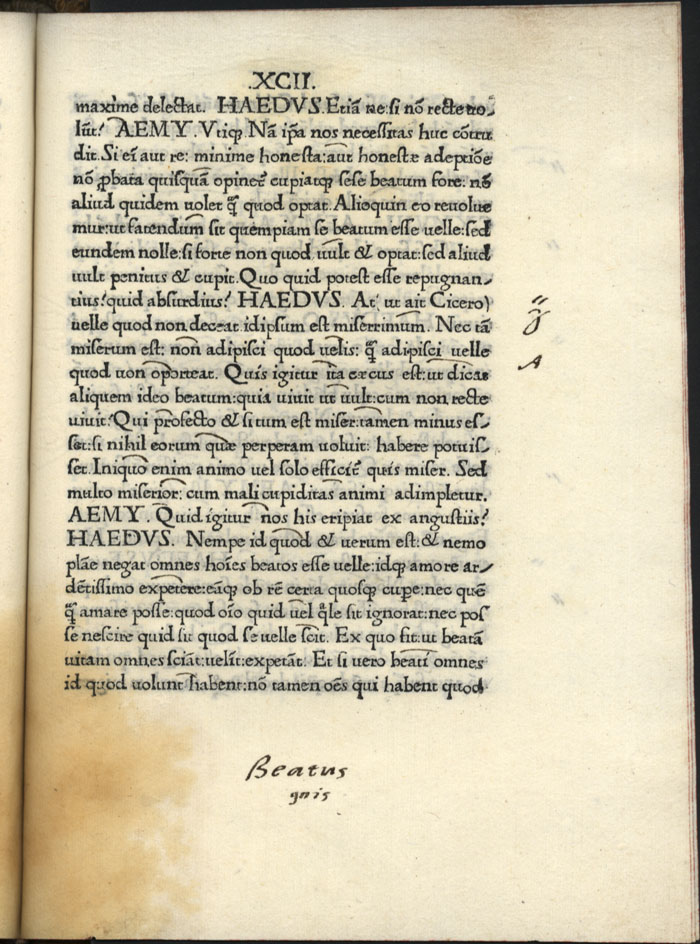 .XCII.
maxime delectat. HAEDVS. Etiã ne: si nõ recte uo-
lũt? AEMY. Vtiqȝ. Nã ip̃a nos necessitas huc cõtru
dit. Si eĩ aut re: minime honesta: aut honestæ adeptiõe
nõ ꝓbata quisquã opinet᷑ cupiatqȝ sese beatum fore: nõ
aliud quidem uolet q̃ꝫ quod optat. Alioquin eo reuolue
mur: ut fatendum sit quempiam se beatum esse uelle: sed
eundem nolle: si forte non quod uult & optat: sed aliud
uult penitus & cupit. Quo quid potest esse repugnan-
tius? quid absurdius? HAEDVS. At, ut ait Cicero)
uelle quod non deceat id ipsum est miserrimum. Nec tã
miserum est: non adipisci quod uelis: q̃ꝫ adipisci uelle
quod non oporteat. Quis igitur ita cæcus est: ut dicat
aliquem ideo beatum: quia uiuit ut uult: cum non recte
uiuit? Qui profecto & si tum est miser: tamen minus es-
set: si nihil eorum quæ perperam uoluit: habere potuis-
set. Iniquo enim animo uel solo efficit᷑ quis miser. Sed
multo miserior: cum mali cupiditas animi adimpletur.
AEMY. Quid igitur nos his eripiat ex angustiis?
HAEDVS. Nempe id quod & uerum est: & nemo
plãe negat omnes hoĩes beatos esse uelle: idqȝ amore ar-
dẽtissimo expetere: eãqȝ ob rẽ certa quosqȝ cupe: nec quẽ
q̃ꝫ amare posse: quod oĩo quid uel q̃le sit ignorat: nec pos
se nescire quid sit quod se uelle scit. Ex quo fit: ut beatã
uitam omnes sciãt: uelĩt: expetãt. Et si uero beati omnes
id quod uolunt habent: nõ tamen oẽs qui habent quod
A
Beatus